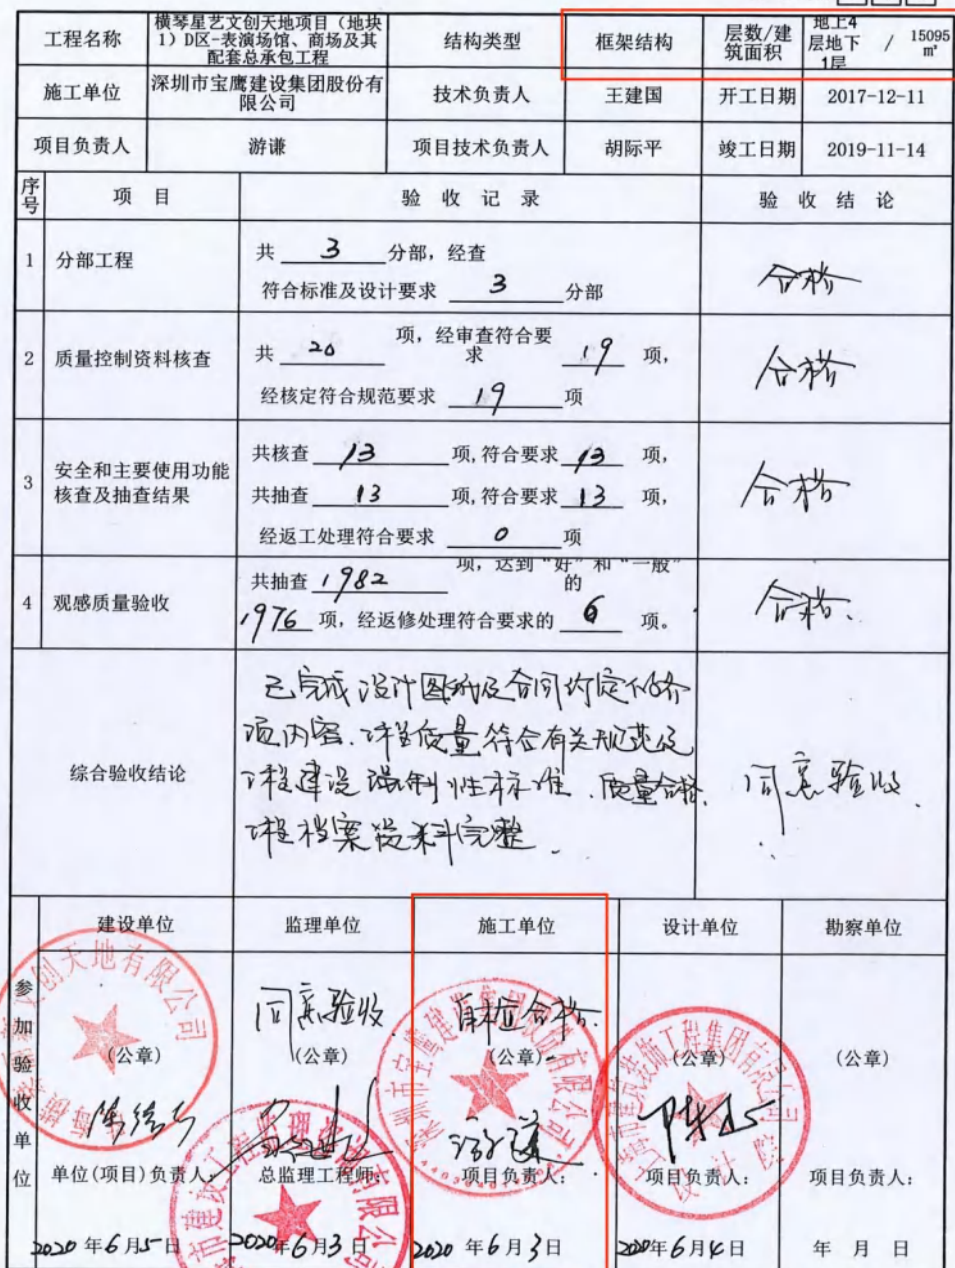 工程名称
横琴星艺文创天地项目（地块
1）D区-表演场馆、商场及其
配套总承包工程
结构类型
框架结构
层数/建
筑面积
地上4
层地下
1层
/
15095
㎡
施工单位
深圳市宝鹰建设集团股份有
限公司
技术负责人
王建国
开工日期
2017-12-11
项目负责人
游谦
项目技术负责人
胡际平
竣工日期
2019-11-14
序号
项 目
验 收 记 录
验 收 结 论
1
分部工程
共 3 分部，经查
符合标准及设计要求 3 分部
合格
2
质量控制资料核查
共 20 项，经审查符合要
求 19 项，
经核定符合规范要求 19 项
合格
3
安全和主要使用功能
核查及抽查结果
共核查 13 项,符合要求 13 项，
共抽查 13 项,符合要求 13 项，
经返工处理符合要求 0 项
合格
4
观感质量验收
共抽查 1982 项，达到“好”和“一般”
的
1976 项，经返修处理符合要求的 6 项。
合格.
综合验收结论
已完成设计图纸及合同约定的各
项内容、工程质量符合有关规范及
工程建设强制性标准、质量合格、
工程档案资料完整.
同意验收.
参加验收单位
建设单位
监理单位
施工单位
设计单位
勘察单位
同意验收
自检合格.
(公章)
(公章)
(公章)
(公章)
(公章)
文创天地有限公司
深圳市宝鹰建设集团股份有限公司
单位(项目)负责人:
总监理工程师:
项目负责人:
项目负责人:
项目负责人:
2020年6月5日
2020年6月3日
2020年6月3日
2020年6月4日
年 月 日